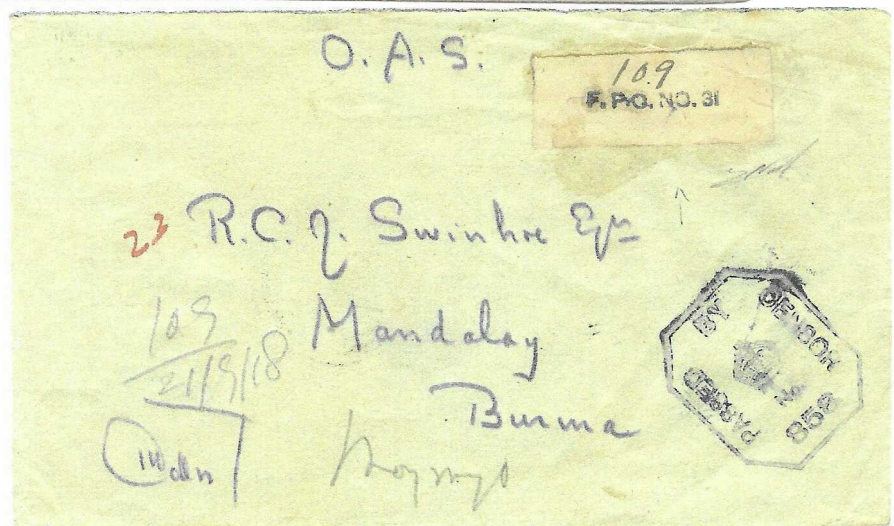 O. A. S.
109
F.P.O. NO. 31
2nd
23 R. C. J. Swinhoe Esqre
Mandalay
Burma
109
21/9/18
PASSED BY CENSOR